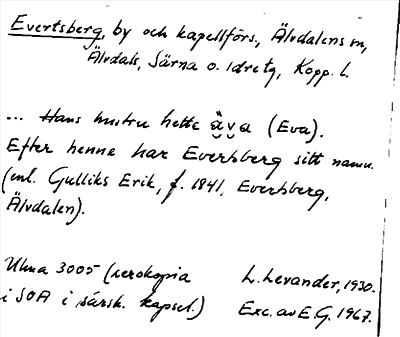 Evertsberg, by och kapellförs., Älvdalens sn,
Älvdals, Särna o. Idre tg, Kopp. l.
... Hans hustru hette äva (Eva).
Efter henne har Evertsberg sitt namn.
(enl. Gulliks Erik, f. 1841, Evertsberg,
Älvdalen).
Ulma 3005 (xerokopia L. Levander, 1930.
i SOA i särsk. kapsel.) Exc. av E.G. 1967.